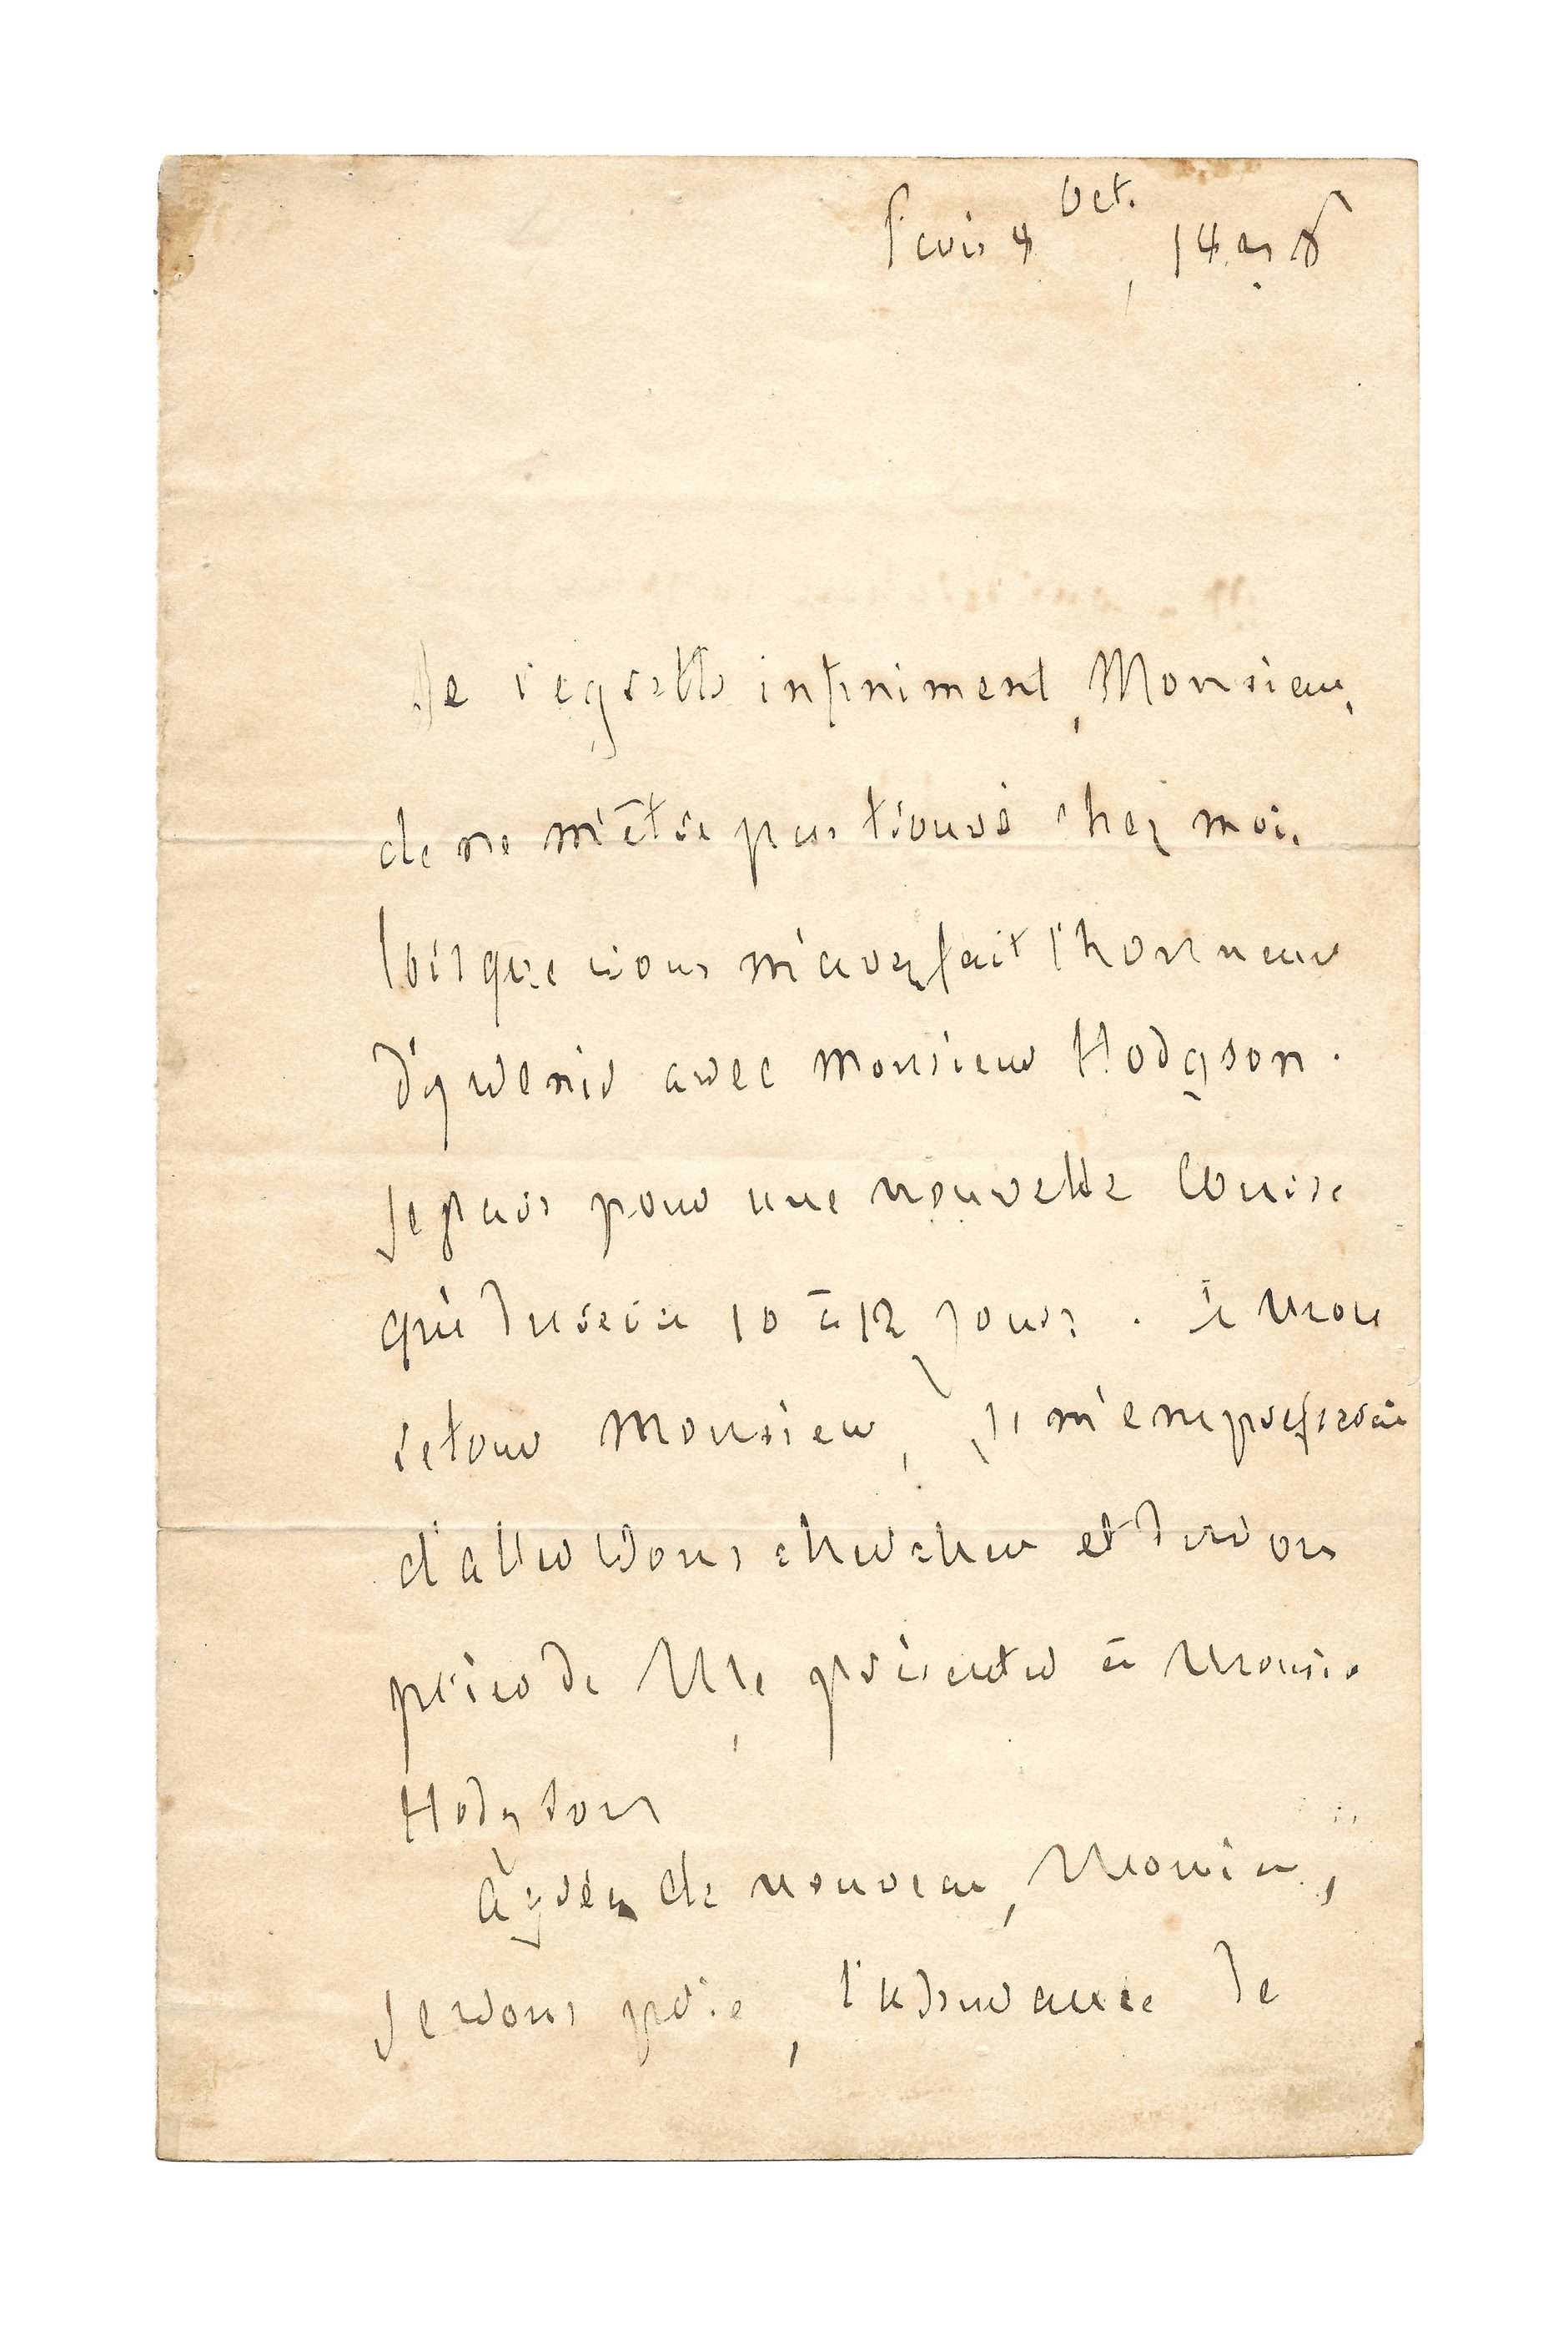 Paris 8 Oct.
Je regrette infiniment, Monsieur,
de ne m'être pas trouvé chez moi
lorsque vous m'avez fait l'honneur
d'y venir avec Monsieur Hodgson.
Je pars pour une nouvelle Course
qui durera 10 à 12 jours. à mon
retour Monsieur, je m'empresserai
d'aller vous chercher et de vous
prier de Me présenter à Monsieur
Hodgson
agréez de nouveau, Monsieur,
Je vous prie, l'assurance de